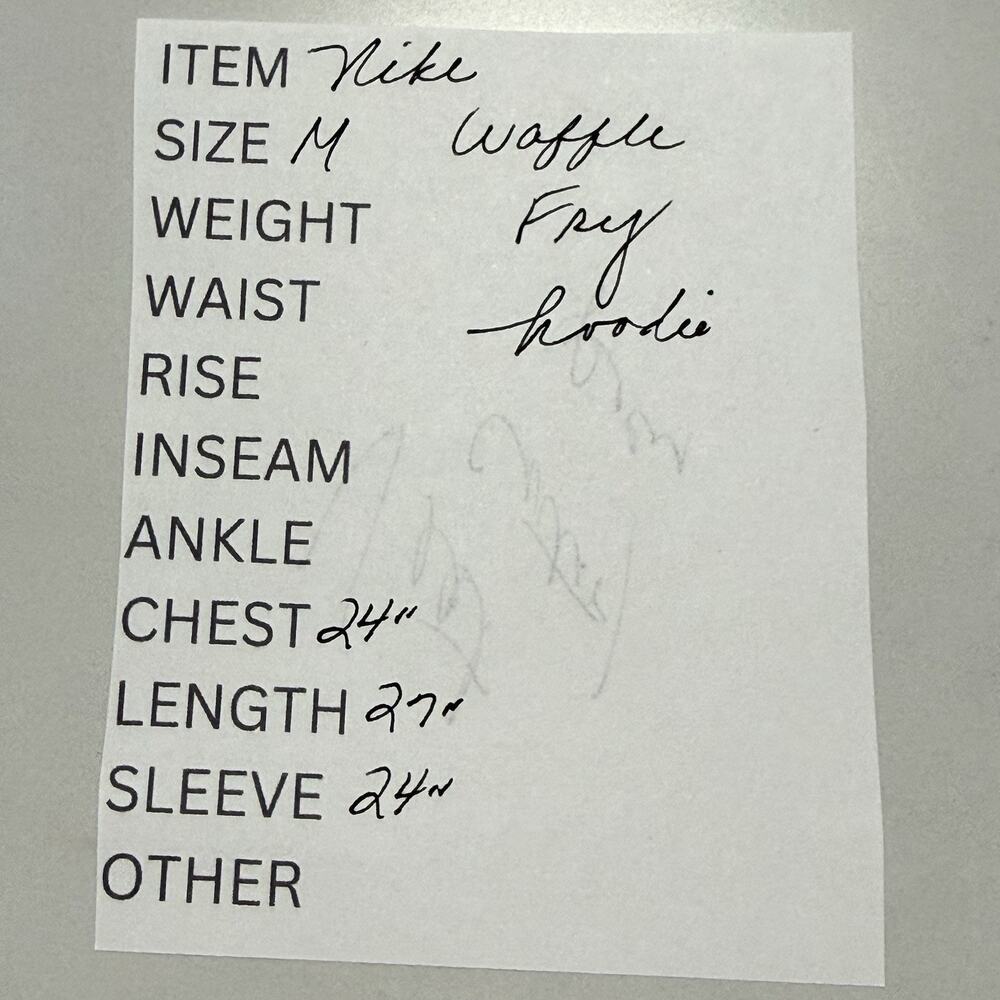 ITEM Nike
SIZE M Waffle
WEIGHT Fry
WAIST hoodie
RISE
INSEAM
ANKLE
CHEST 24"
LENGTH 27"
SLEEVE 24"
OTHER